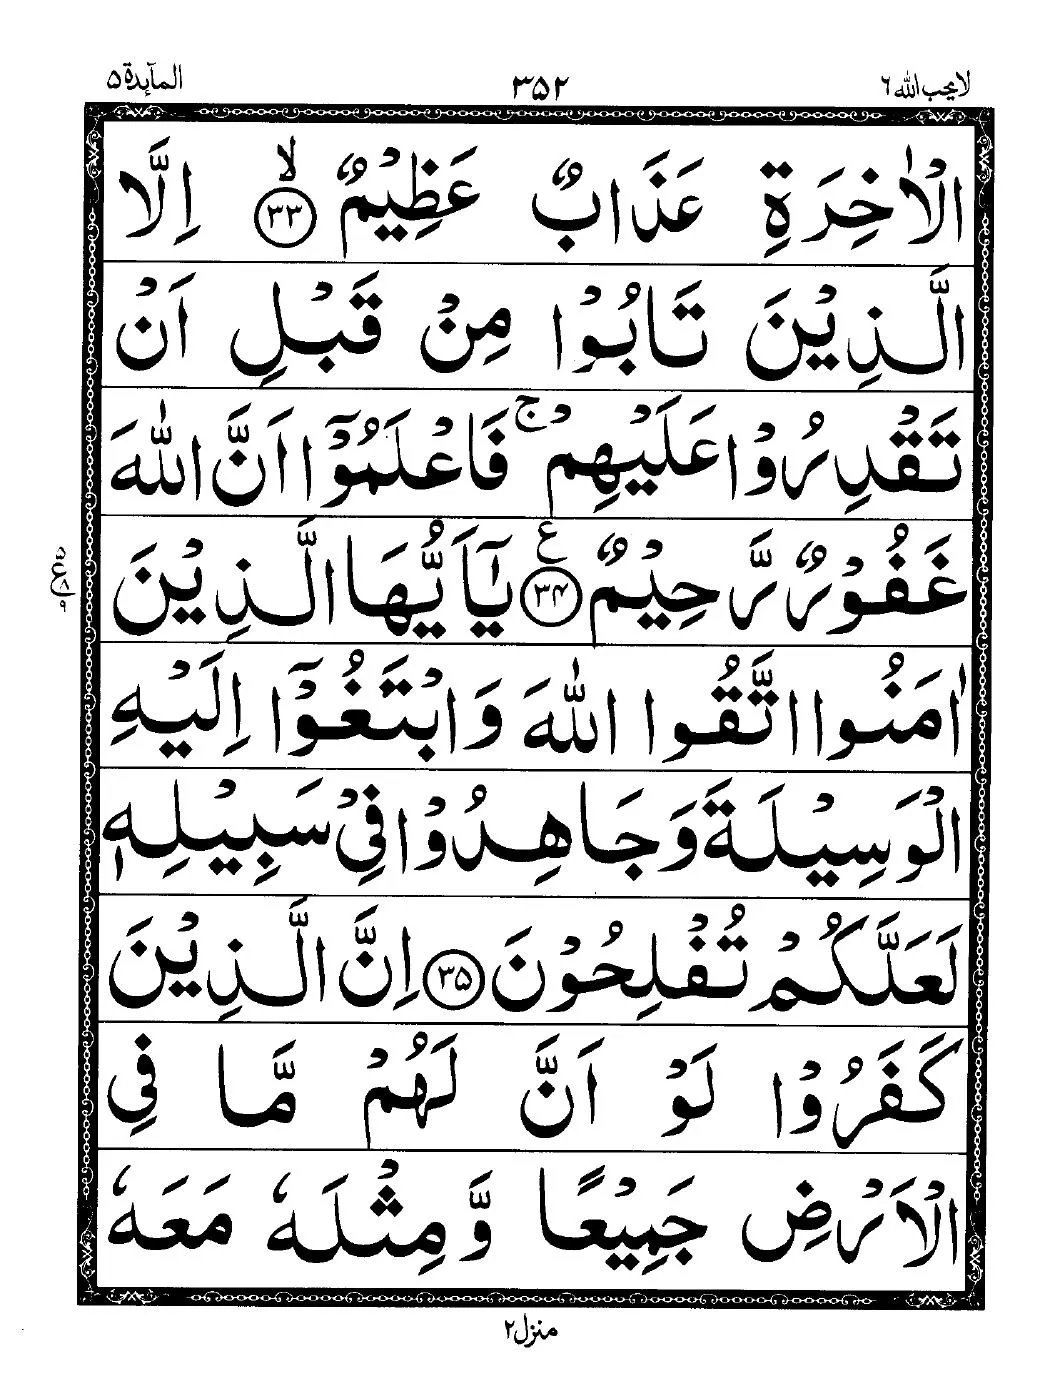 لا یحب اللہ ۶ ۳۵۲ المآىِٕدة ۵
الْاٰخِرَةِ عَذَابٌ عَظِیْمٌ ﴿۳۳﴾ۙ اِلَّا
الَّذِیْنَ تَابُوْا مِنْ قَبْلِ اَنْ
تَقْدِرُوْا عَلَیْهِمْ ۚ فَاعْلَمُوْۤا اَنَّ اللّٰهَ
غَفُوْرٌ رَّحِیْمٌ ﴿۳۴﴾ ع یٰۤاَیُّهَا الَّذِیْنَ
اٰمَنُوا اتَّقُوا اللّٰهَ وَابْتَغُوْۤا اِلَیْهِ
الْوَسِیْلَةَ وَجَاهِدُوْا فِیْ سَبِیْلِهٖ
لَعَلَّكُمْ تُفْلِحُوْنَ ﴿۳۵﴾ اِنَّ الَّذِیْنَ
كَفَرُوْا لَوْ اَنَّ لَهُمْ مَّا فِی
الْاَرْضِ جَمِیْعًا وَّمِثْلَهٗ مَعَهٗ
منزل ۲